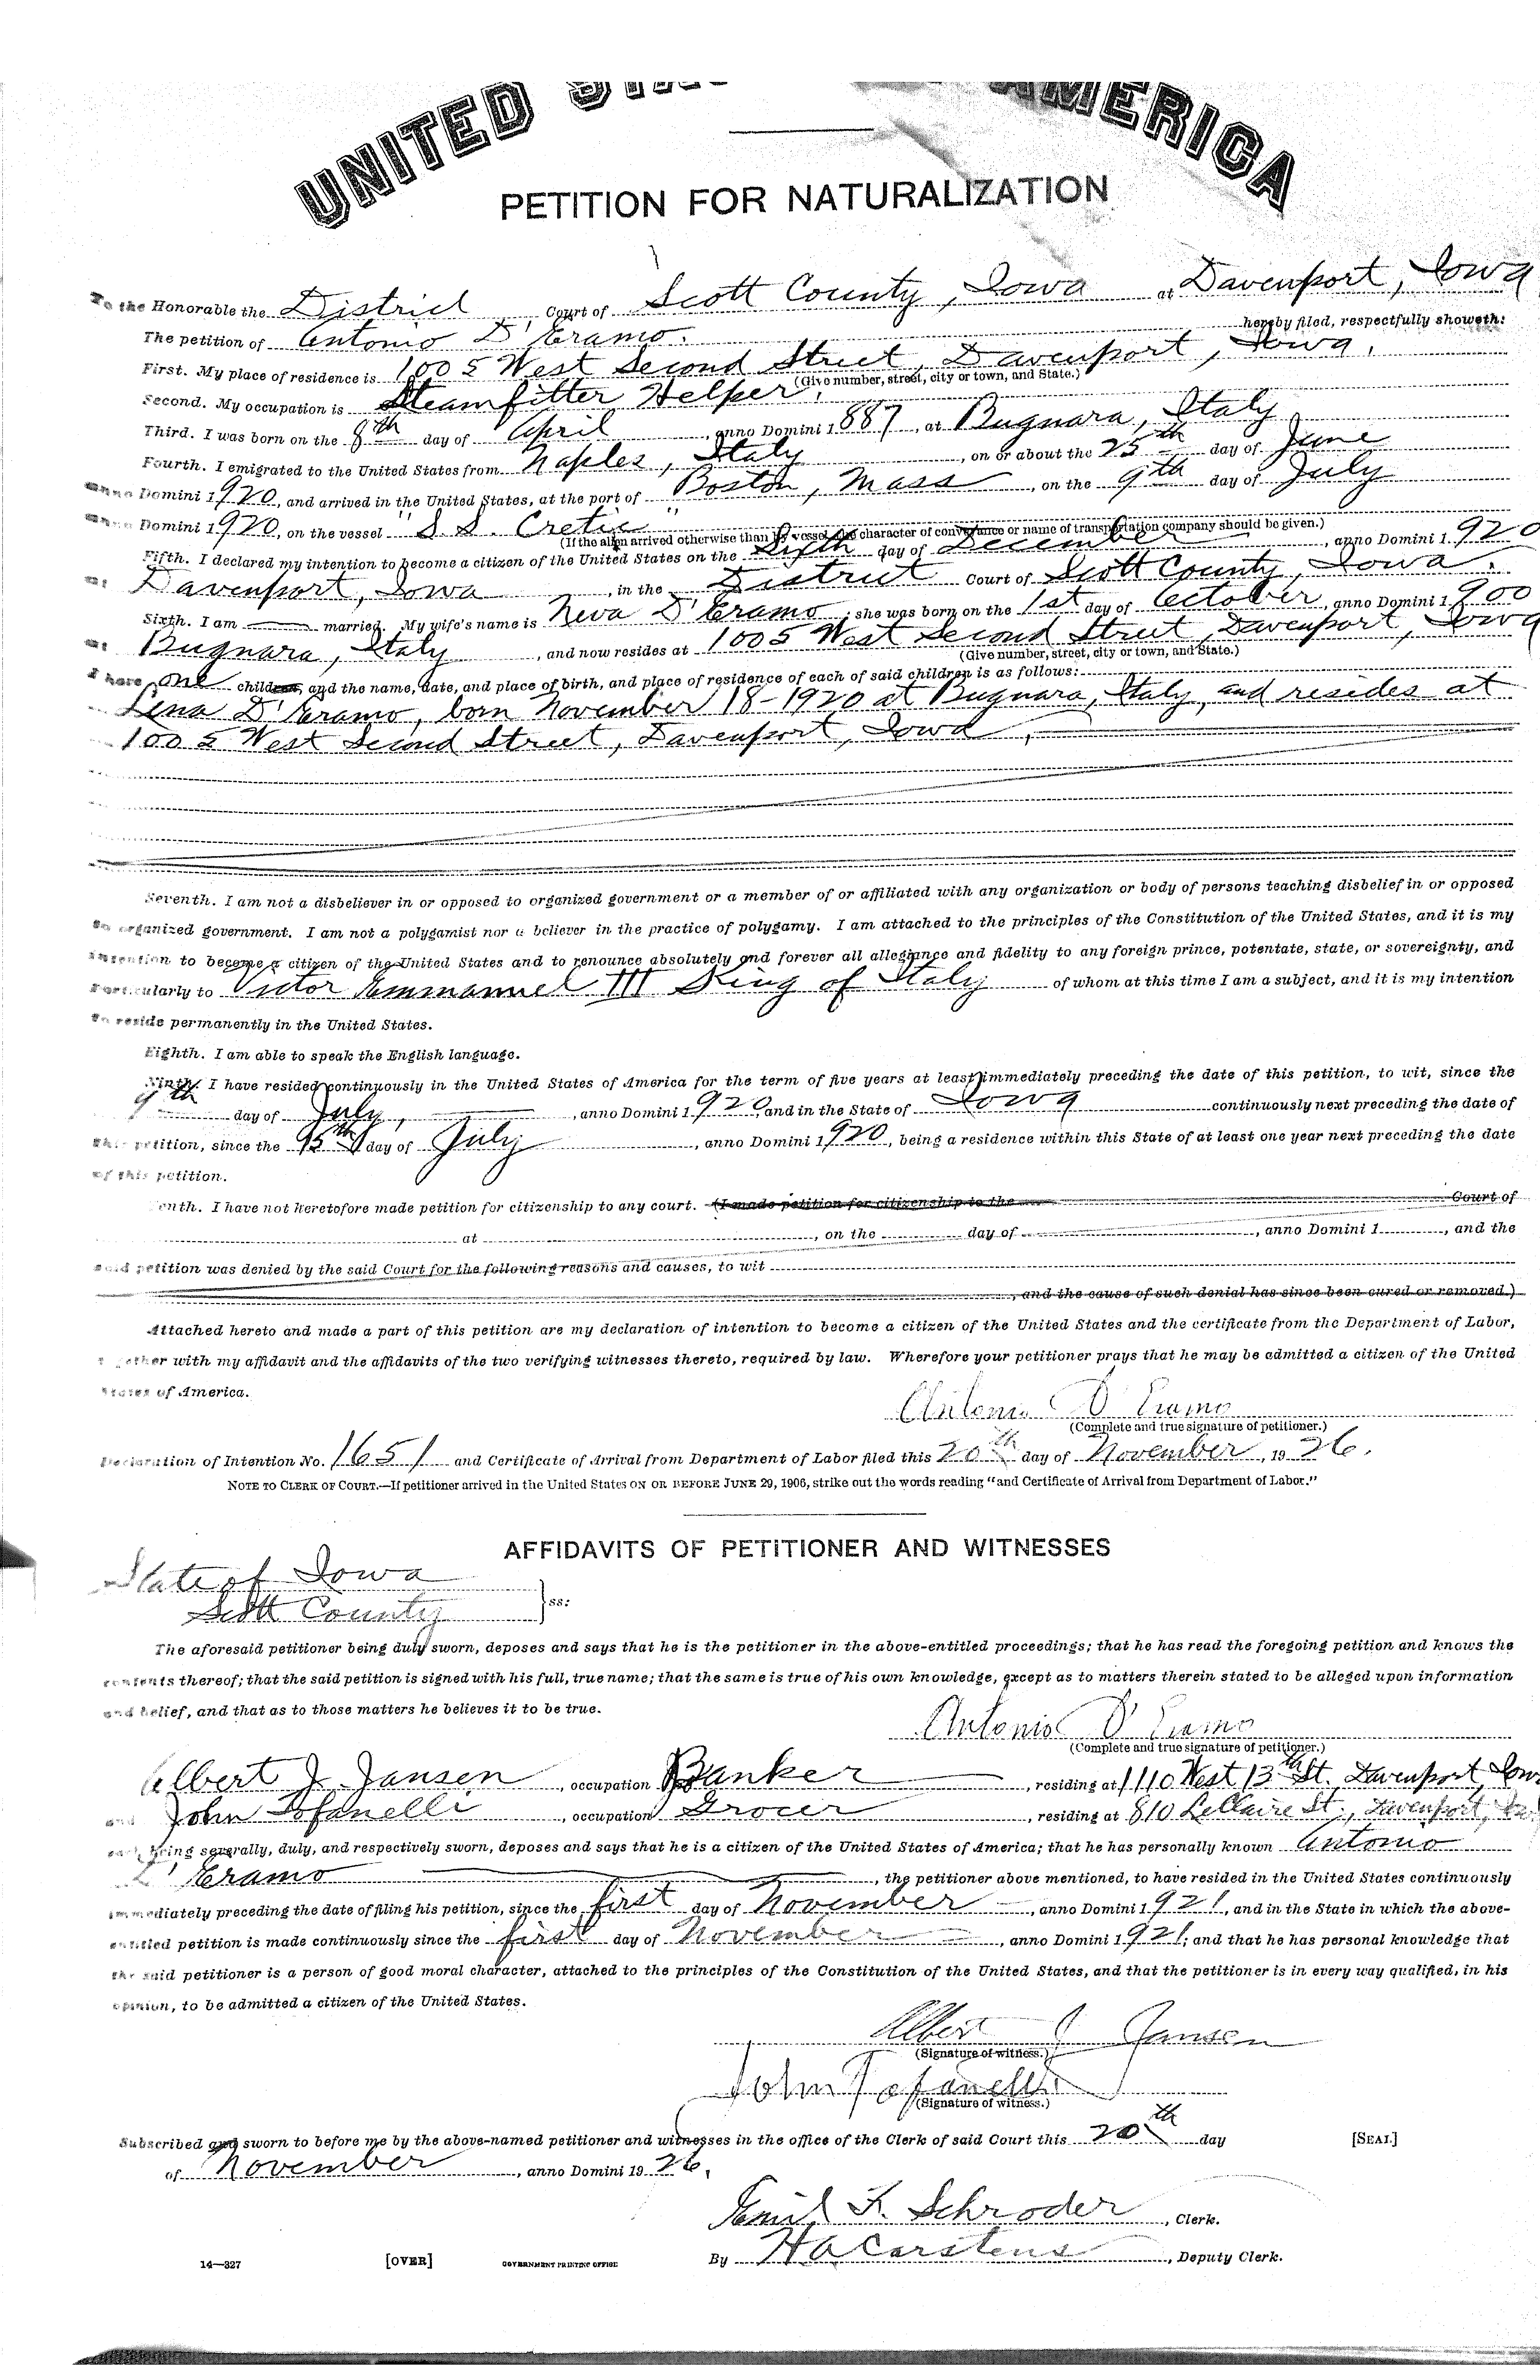 UNITED STATES AMERICA
PETITION FOR NATURALIZATION
To the Honorable the District Court of Scott County, Iowa at Davenport, Iowa
The petition of Antonio D'Eramo. hereby filed, respectfully showeth:
First. My place of residence is 1005 West Second Street, Davenport, Iowa.
(Give number, street, city or town, and State.)
Second. My occupation is Steamfitter Helper.
Third. I was born on the 8th day of April, anno Domini 1887, at Bugnara, Italy
Fourth. I emigrated to the United States from Naples, Italy, on or about the 25th day of June
anno Domini 1920, and arrived in the United States, at the port of Boston, Mass, on the 9th day of July
anno Domini 1920, on the vessel "S.S. Cretic"
(If the alien arrived otherwise than by vessel, the character of conveyance or name of transportation company should be given.)
Fifth. I declared my intention to become a citizen of the United States on the day of December, anno Domini 1920
at Davenport, Iowa, in the District Court of Scott County, Iowa.
Sixth. I am married. My wife's name is Neva D'Eramo; she was born on the 1st day of October, anno Domini 1900
at Bugnara, Italy, and now resides at 1005 West Second Street, Davenport, Iowa
(Give number, street, city or town, and State.)
I have one children, and the name, date, and place of birth, and place of residence of each of said children is as follows:
Lena D'Eramo, born November 18-1920 at Bugnara, Italy, and resides at
1005 West Second Street, Davenport, Iowa.
Seventh. I am not a disbeliever in or opposed to organized government or a member of or affiliated with any organization or body of persons teaching disbelief in or opposed
to organized government. I am not a polygamist nor a believer in the practice of polygamy. I am attached to the principles of the Constitution of the United States, and it is my
intention to become a citizen of the United States and to renounce absolutely and forever all allegiance and fidelity to any foreign prince, potentate, state, or sovereignty, and
particularly to Victor Emmanuel III King of Italy of whom at this time I am a subject, and it is my intention
to reside permanently in the United States.
Eighth. I am able to speak the English language.
Ninth. I have resided continuously in the United States of America for the term of five years at least immediately preceding the date of this petition, to wit, since the
9th day of July, anno Domini 1920, and in the State of Iowa continuously next preceding the date of
this petition, since the 15th day of July, anno Domini 1920, being a residence within this State of at least one year next preceding the date
of this petition.
Tenth. I have not heretofore made petition for citizenship to any court. (I made petition for citizenship to the Court of
at, on the day of, anno Domini 1, and the
said petition was denied by the said Court for the following reasons and causes, to wit
, and the cause of such denial has since been cured or removed.)
Attached hereto and made a part of this petition are my declaration of intention to become a citizen of the United States and the certificate from the Department of Labor,
together with my affidavit and the affidavits of the two verifying witnesses thereto, required by law. Wherefore your petitioner prays that he may be admitted a citizen of the United
States of America.
Antonio D'Eramo
(Complete and true signature of petitioner.)
Declaration of Intention No. 1651 and Certificate of Arrival from Department of Labor filed this 20th day of November, 1926.
NOTE TO CLERK OF COURT.—If petitioner arrived in the United States ON OR BEFORE JUNE 29, 1906, strike out the words reading "and Certificate of Arrival from Department of Labor."
AFFIDAVITS OF PETITIONER AND WITNESSES
State of Iowa
Scott County } ss:
The aforesaid petitioner being duly sworn, deposes and says that he is the petitioner in the above-entitled proceedings; that he has read the foregoing petition and knows the
contents thereof; that the said petition is signed with his full, true name; that the same is true of his own knowledge, except as to matters therein stated to be alleged upon information
and belief, and that as to those matters he believes it to be true.
Antonio D'Eramo
(Complete and true signature of petitioner.)
Albert J. Jansen, occupation Banker, residing at 1110 West 13th St. Davenport, Iowa
and John Tofanelli, occupation Grocer, residing at 810 LeClaire St., Davenport, Iowa
each being severally, duly, and respectively sworn, deposes and says that he is a citizen of the United States of America; that he has personally known Antonio
D'Eramo, the petitioner above mentioned, to have resided in the United States continuously
immediately preceding the date of filing his petition, since the first day of November, anno Domini 1921, and in the State in which the above-
entitled petition is made continuously since the first day of November, anno Domini 1921; and that he has personal knowledge that
the said petitioner is a person of good moral character, attached to the principles of the Constitution of the United States, and that the petitioner is in every way qualified, in his
opinion, to be admitted a citizen of the United States.
Albert J Jansen
(Signature of witness.)
John Tofanelli
(Signature of witness.)
Subscribed and sworn to before me by the above-named petitioner and witnesses in the office of the Clerk of said Court this 20th day [SEAL]
of November, anno Domini 1926.
Emil F. Schroder, Clerk.
14—327 [OVER] GOVERNMENT PRINTING OFFICE By HA Carstens, Deputy Clerk.